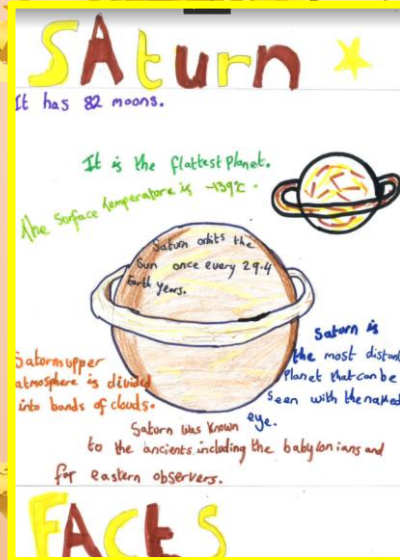 SAturn
It has 82 moons.
It is the flattest planet.
The surface temperature is -139°c.
Saturn orbits the
Sun once every 29.4
Earth years.
Saturn is
the most distant
planet that can be
seen with the naked
eye.
Saturns upper
atmosphere is divided
into bands of clouds.
Saturn was known
to the ancients including the babylonians and
for eastern observers.
FACtS